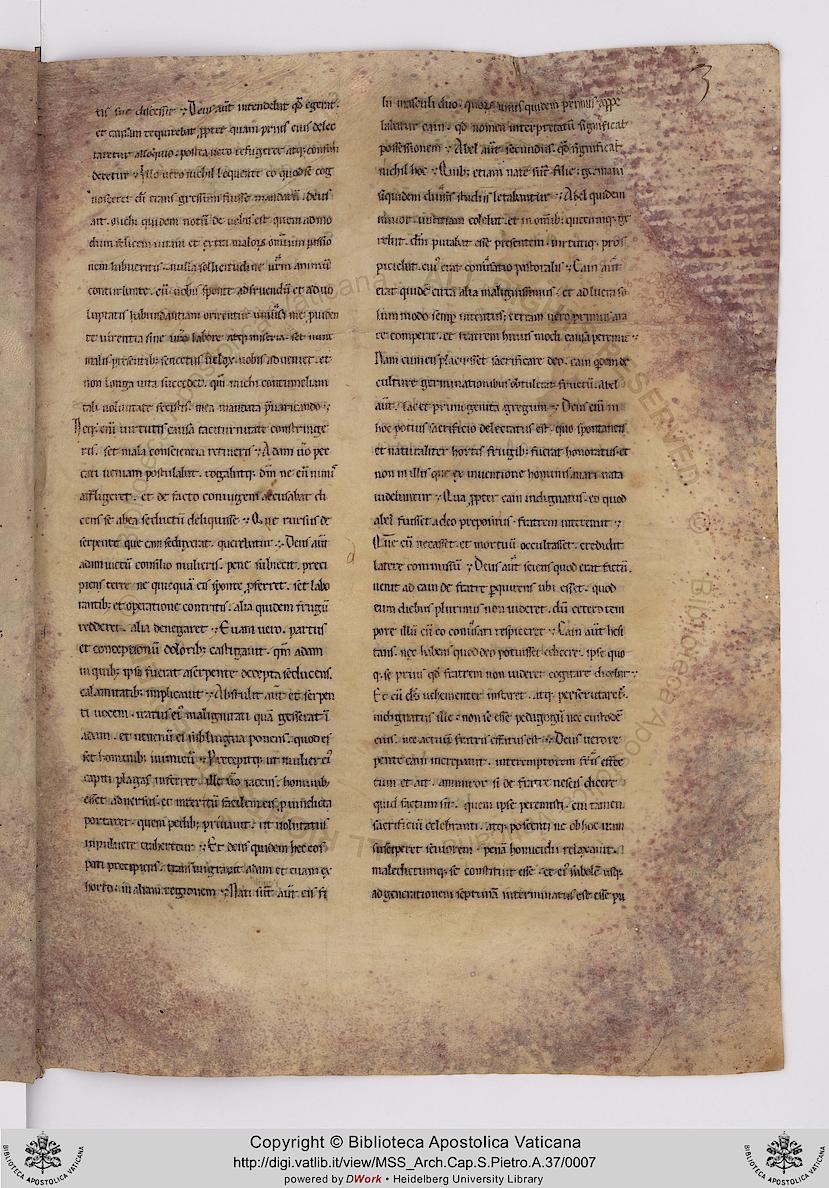 3
tis sue discessit. Deus aut intendebat qd egerat.
et causam requirebat ppter quam prius eius delec
taretur alloquio. postea vero refugeret atq; consu
deretur. Illo vero nichil loquente eo quod se cog
nosceret dei trans gressum fuisse mandatu. deus
ait. michi quidem notu de vobis est quem admo
dum felicem vitam et extra malorum omnium passio
nem habueritis. nulla sollicitudine vrm animu
conturbante.
luptatis habundantiam orirentur me puiden
te virentia sine vro labore atq; miseria. set nunc
malis presentib; senectus velox. vobis adveniet. et
non longa vita succedet. qm michi contumeliam
tali voluntate fecistis. mea mandata pvaricando.
Neq; eni virtutis causa taciturnitate constringe
ris. set mala conscientia retineris. Adam vo pec
cati veniam postulabat. rogabatq; dnm ne eu
affligeret. et de facto coniugem accusabat di
cens se ab ea seductu deliquisse. Que rursus de
serpente que eam seduxerat. querebatur. Deus aut
adam victu consilio mulieris. pene subiecit. preci
piens terre ne quicqua eis sponte pferret. set labo
rantib; et opatione contritis. alia quidem frugu
redderet. alia denegaret. Evam vero. partus
et conceptionu dolorib; castigavit. qm adam
in quib; ipsa fuerat a serpente decepta seducens.
calamitatib; implicavit. Abstulit aut et serpen
ti vocem. iratus ei malignitati qua gesserat i
adam. et venenu ei sub lingua ponens. quod es
set hominib; inimicu. Precepitq; ut mulier ei
capiti plagas inferret. ille vo iacens. hominib;
esset adversus. et interitu facilem eis p vindicta
portaret. quem pedib; privavit. ut volutatus
in pulvere traheretur. Et deus quidem hec eos
pati precipiens. transmigravit adam et evam ex
horto. in aliam regionem. Nati sut aut eis fi
lii masculi duo. quorum unus quidem primus appe
labatur cain. qd nomen interpretatu significat
possessionem. Abel aut secundus. qd significat
nichil hoc. Quib; etiam nate sut filie. germani
siquidem diversis studiis letabantur. Abel quidem
iunior. iustitiam colebat. et in omib; quecumq; ge
rebat. dm putabat esse presentem. virtutiq; pros
piciebat. eius erat conversatio pastoralis. Cain aut
erat quidem circa alia malignissimus. et ad lucra so
lum modo semp intentus. terram vero primus ara
re comperit. et fratrem huius modi causa peremit.
Nam cum eis placuisset sacrificare deo. cain quidem de
culture germinationibus obtulerat fructu. Abel
aut. lac et primogenita gregum. Deus eni in
hoc potius sacrificio delectatus est. quo spontaneis
et naturaliter hortis frugib; fuerat honoratus. et
non in illis que ex inventione hominis avari nata
videbantur. Qua ppter cain indignatus. eo quod
abel fuisset a deo prepositus. fratrem interemit.
Que cu necasset. et mortuu occultasset. credidit
latere commissum. Deus aut sciens quod erat factu.
venit ad cain de fratre pquirens ubi esset. quod
eum diebus plurimis non videret. cu cetero tem
pore illu cu eo conversari respiceret. Cain aut hesi
tans. nec habens quod deo potuisset edicere. ipse quo
q; se prius qd fratrem non videret cogitare dicebat.
Et cu ds vehementer instaret. atq; perscrutaret.
indignatus ille. non se esse pedagogu nec custode
eius. nec actuu fratris effectus est. Deus vero re
pente cain increpavit. interemptorem fris effec
tum et ait. ammiror si de fratre nescis dicere
quid factum sit. quem ipse peremisti. cui tamen
sacrificiu celebranti. atq; poscenti ne ob hoc iram
susciperet seviorem. pena homicidii relaxavit.
maledictumq; se constituit esse. et ei sobole usq;
ad generationem septima interminatus est esse pu
Copyright © Biblioteca Apostolica Vaticana
http://digi.vatlib.it/view/MSS_Arch.Cap.S.Pietro.A.37/0007
powered by DWork • Heidelberg University Library